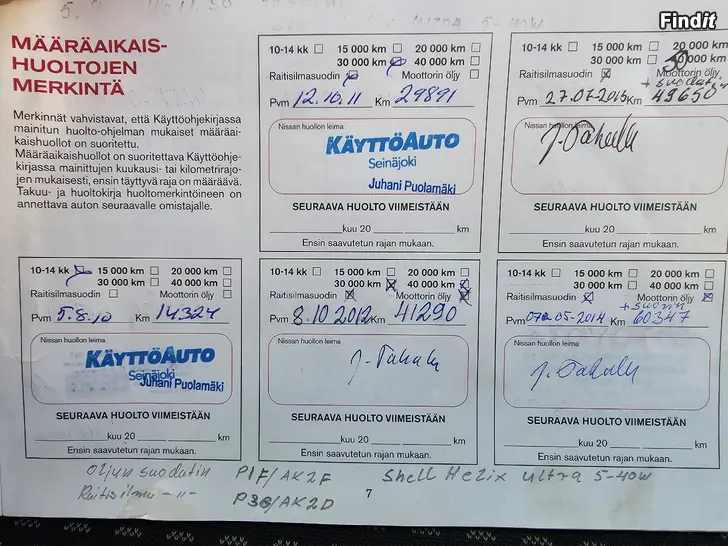 Findit
MÄÄRÄAIKAIS-
HUOLTOJEN
MERKINTÄ
Merkinnät vahvistavat, että Käyttöohjekirjassa
mainitun huolto-ohjelman mukaiset määräai-
kaishuollot on suoritettu.
Määräaikaishuollot on suoritettava Käyttöohje-
kirjassa mainittujen kuukausi- tai kilometrirajo-
jen mukaisesti, ensin täyttyvä raja on määräävä.
Takuu- ja huoltokirja huoltomerkintöineen on
annettava auton seuraavalle omistajalle.
10-14 kk 15 000 km 20 000 km
30 000 km 40 000 km
Raitisilmasuodin Moottorin öljy
Pvm 12.10.11 Km 29891
Nissan huollon leima
KÄYTTÖAUTO
Seinäjoki
Juhani Puolamäki
SEURAAVA HUOLTO VIIMEISTÄÄN
kuu 20 km
Ensin saavutetun rajan mukaan.
10-14 kk 15 000 km 20 000 km
30 000 km 50 000 km
Raitisilmasuodin Moottorin öljy
+ suodatin
Pvm 27.07-2013 Km 49650
Nissan huollon leima
SEURAAVA HUOLTO VIIMEISTÄÄN
kuu 20 km
Ensin saavutetun rajan mukaan.
10-14 kk 15 000 km 20 000 km
30 000 km 40 000 km
Raitisilmasuodin Moottorin öljy
Pvm 5.8.10 Km 14324
Nissan huollon leima
KÄYTTÖAUTO
Seinäjoki
Juhani Puolamäki
SEURAAVA HUOLTO VIIMEISTÄÄN
kuu 20 km
Ensin saavutetun rajan mukaan.
10-14 kk 15 000 km 20 000 km
30 000 km 40 000 km
Raitisilmasuodin Moottorin öljy
Pvm 8.10 2012 Km 41290
Nissan huollon leima
SEURAAVA HUOLTO VIIMEISTÄÄN
kuu 20 km
Ensin saavutetun rajan mukaan.
10-14 kk 15 000 km 20 000 km
30 000 km 40 000 km
Raitisilmasuodin Moottorin öljy
Pvm 05-2014 Km 60347
Nissan huollon leima
SEURAAVA HUOLTO VIIMEISTÄÄN
kuu 20 km
Ensin saavutetun rajan mukaan.
Öljyn suodatin P1F/AK2F Shell Helix ultra 5-40W
Raitisilma -"- P36/AK2D
7